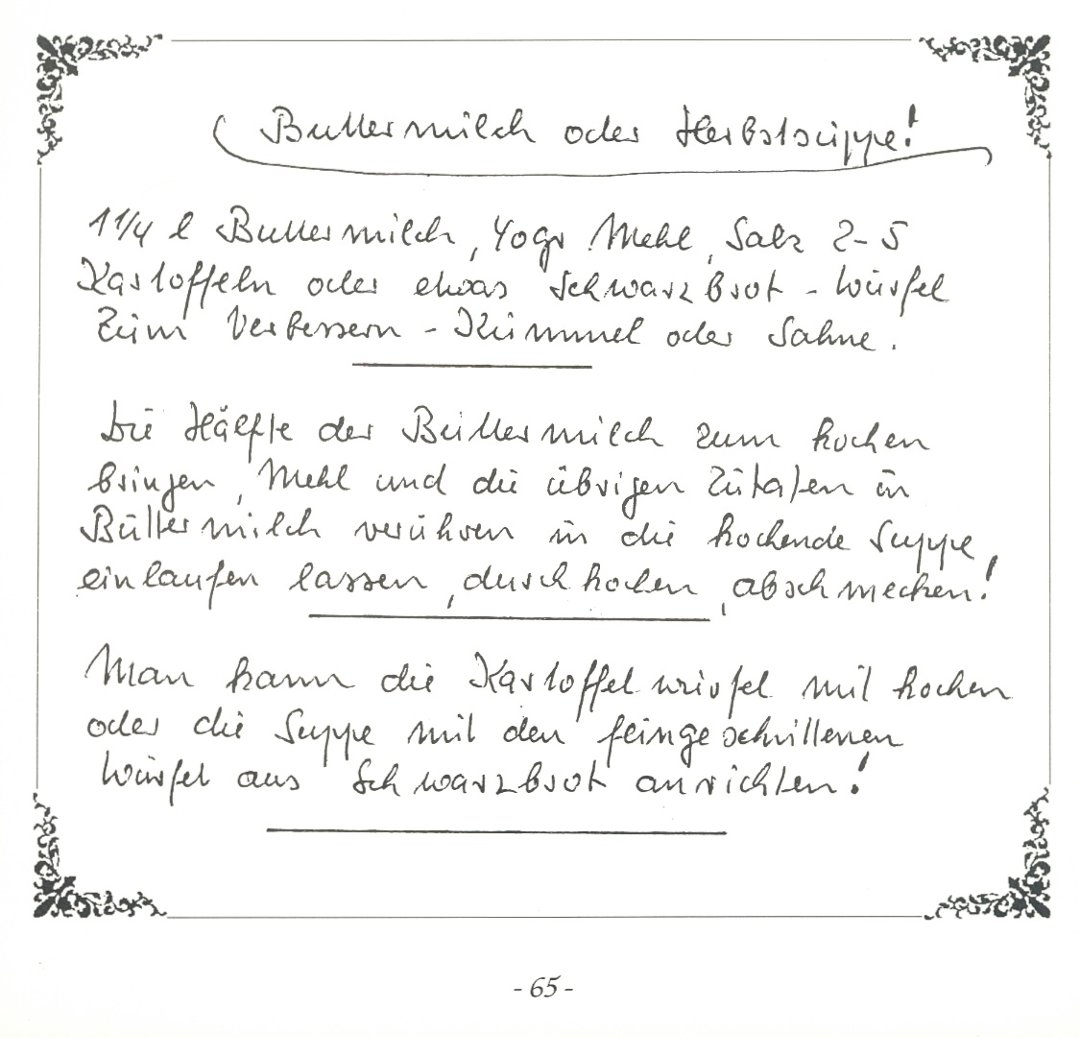 Buttermilch oder Herbstsuppe!
1 1/4 l Buttermilch, 40gr Mehl, Salz 2-5
Kartoffeln oder etwas Schwarzbrot-Würfel
Zum Verbessern - Kümmel oder Sahne.
Die Hälfte der Buttermilch zum kochen
bringen, Mehl und die übrigen Zutaten in
Buttermilch verühren in die kochende Suppe,
einlaufen lassen, durchkochen, abschmecken!
Man kann die Kartoffelwürfel mit kochen
oder die Suppe mit den feingeschnittenen
Würfel aus Schwarzbrot anrichten!
- 65 -